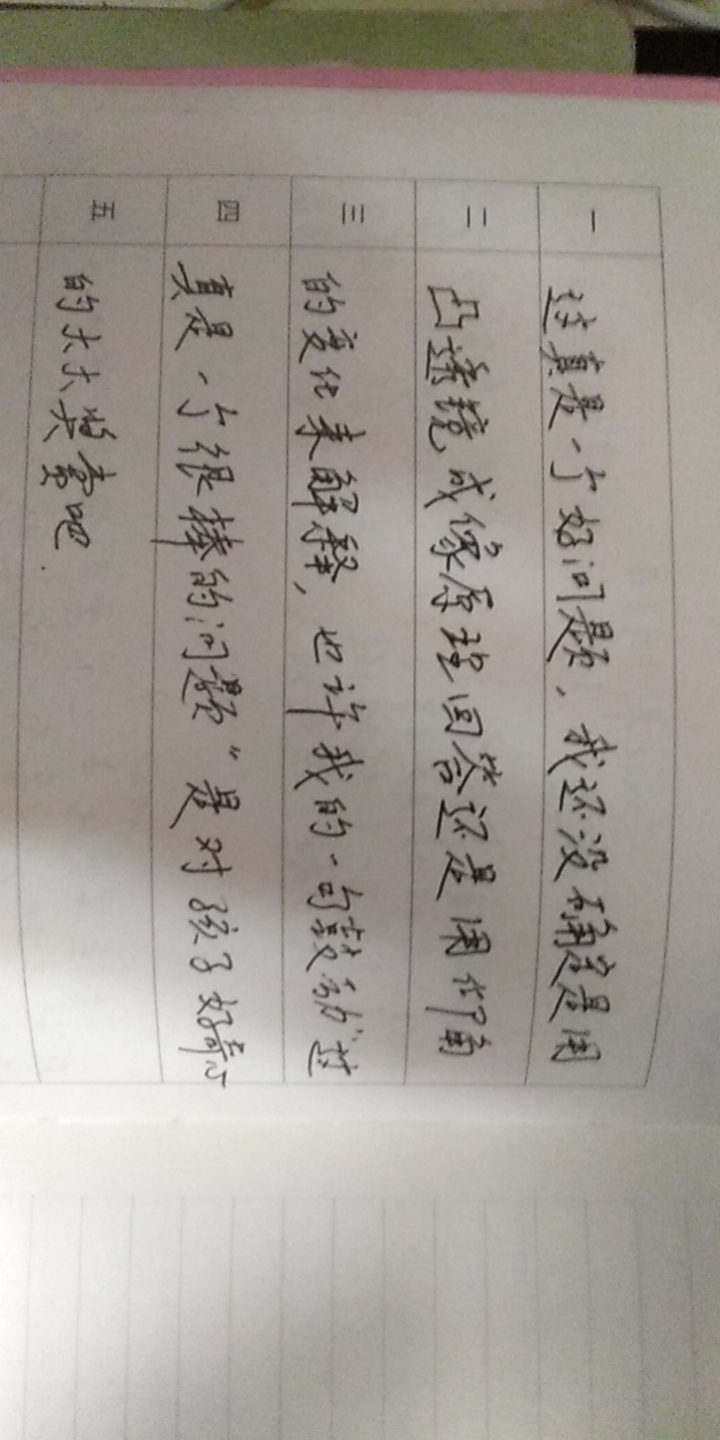 一 这真是一个好问题，我还没确定是用
二 凸透镜成像原理回答还是用仰角
三 的变化来解释，也许我的一句鼓励"这
四 真是一个很棒的问题"是对孩子好奇心
五 的大大奖赏吧.